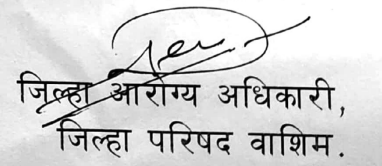 जिल्हा आरोग्य अधिकारी,
जिल्हा परिषद वाशिम.